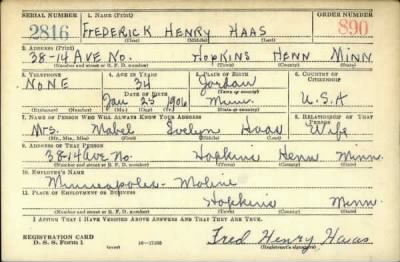 SERIAL NUMBER 1. NAME (Print) ORDER NUMBER
2816 FREDERICK HENRY HAAS 890
(First) (Middle) (Last)
2. ADDRESS (Print)
38-14 AVE NO. HOPKINS HENN MINN
(Number and street or R. F. D. number) (Town) (County) (State)
3. TELEPHONE 4. AGE IN YEARS 5. PLACE OF BIRTH 6. COUNTRY OF CITIZENSHIP
NONE 34 Jordan
DATE OF BIRTH (Town or county)
Jan 25 1906 Minn. U.S.A
(Exchange) (Number) (Mo.) (Day) (Yr.) (State or country)
7. NAME OF PERSON WHO WILL ALWAYS KNOW YOUR ADDRESS 8. RELATIONSHIP OF THAT PERSON
Mrs. Mabel Evelyn Haas Wife
(Mr., Mrs., Miss) (First) (Middle) (Last)
9. ADDRESS OF THAT PERSON
38-14 ave. No. Hopkins Henn Minn.
(Number and street or R. F. D. number) (Town) (County) (State)
10. EMPLOYER'S NAME
Minneapolis-Moline
11. PLACE OF EMPLOYMENT OR BUSINESS
Hopkins Minn.
(Number and street or R. F. D. number) (Town) (County) (State)
I AFFIRM THAT I HAVE VERIFIED ABOVE ANSWERS AND THAT THEY ARE TRUE.
REGISTRATION CARD
D. S. S. Form 1 (over) Fred Henry Haas
(Registrant's signature)